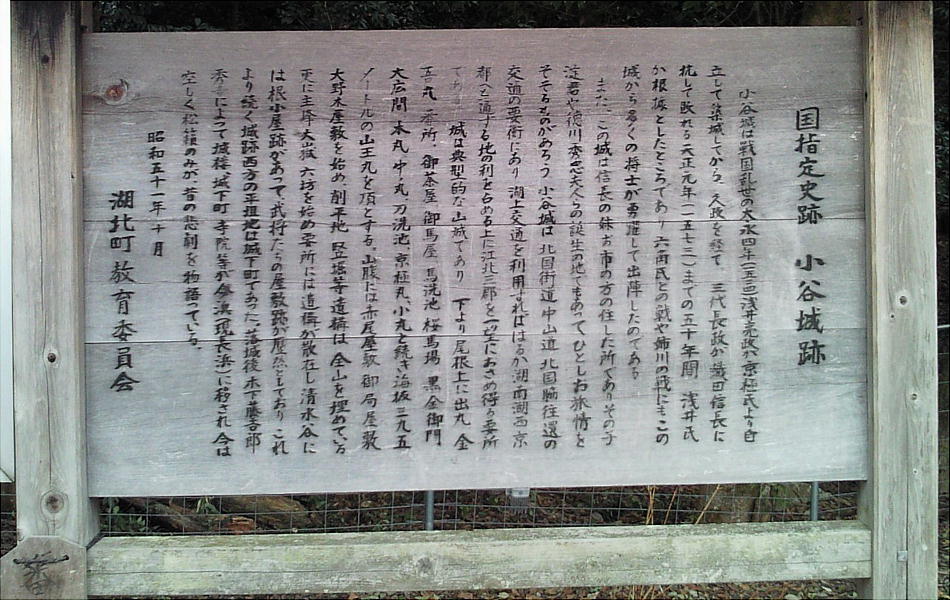 国指定史跡　小谷城跡
小谷城は戦国乱世の大永四年(一五二四)浅井亮政が京極氏より自
立して築城してから、久政を経て、三代長政が織田信長に
抗して敗れる天正元年(一五七三)までの五十年間　浅井氏
が根拠としたところであり六角氏との戦や姉川の戦にもこの
城から多くの将士が勇躍して出陣したのである
また、この城は信長の妹お市の方の住した所でありその子
淀君や徳川秀忠夫人らの誕生の地でもあってひとしお旅情を
そそるものがあろう　小谷城は北国街道中山道　北国脇往還の
交通の要衝にあり　湖上交通を利用すればはるか湖南湖西京
都へと通ずる地の利を占める上に江北三郡を一望におさめ得る要所
であ
城は典型的な山城であり　下より尾根上に出丸　金
吾丸　番所　御茶屋　御馬屋　馬洗池　桜馬場　黒金御門
大広間　本丸　中ノ丸、刀洗池、京極丸、小丸と続き海抜三九五
メートルの山王丸を頂とする。山腹には赤尾屋敷　御局屋敷
大野木屋敷を始め、削平地　竪堀等遺構は　全山を埋めている
更に主峰大嶽　六坊を始め要所には遺構が散在し清水谷に
は根小屋跡があって、武将たちの屋敷跡が歴然としており　これ
より続く城跡西方の平坦地は城下町であった。落城後木下藤吉郎
秀吉によって城楼　城下町　寺院等が今浜(現長浜)に移され　今は
空しく松籟のみが　昔の悲劇を物語っている。
昭和五十一年十月
湖北町教育委員会